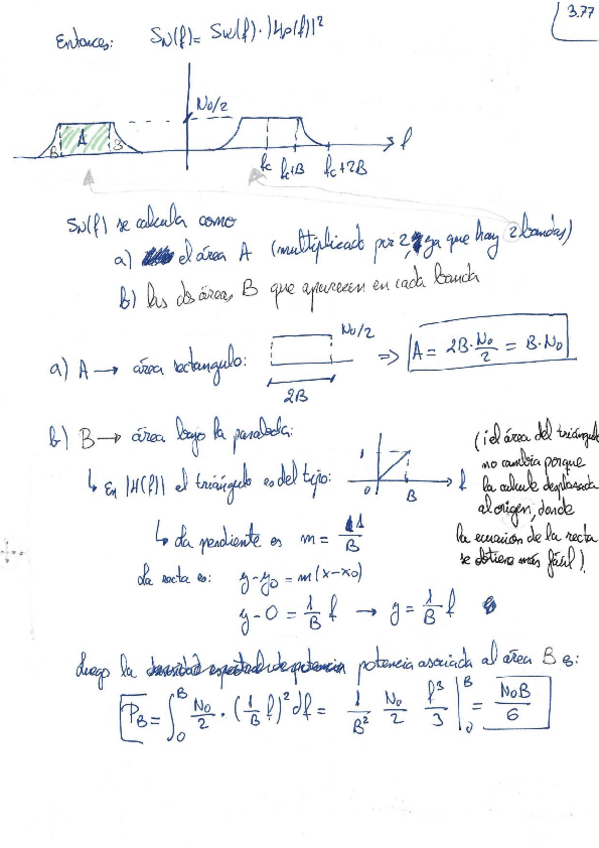 3.77
Entonces: SN(f) = Sw(f) · |HD(f)|²
N0/2
A
B
B
f
fc
fc+B
fc+2B
SN(f) se calcula como
a) el área A (multiplicado por 2, ya que hay 2 bandas)
b) las dos áreas B que aparecen en cada banda
a) A → área rectangulo:
N0/2
2B
⇒ A = 2B · N0/2 = B · N0
b) B → área bajo la parabola:
↳ En |H(f)| el triángulo es del tipo:
1
0
B
f
(¡el área del triángulo
no cambia porque
la calcule desplazada
al origen, donde
la ecuacion de la recta
se obtiene más fácil).
↳ La pendiente es m = 1/B
La recta es: y - y0 = m(x - x0)
y - 0 = 1/B f → y = 1/B f
Luego la densidad espectral de potencia potencia asociada al área B es:
PB = ∫0^B N0/2 · (1/B f)² df = 1/B² N0/2 f³/3 |0^B = N0B/6